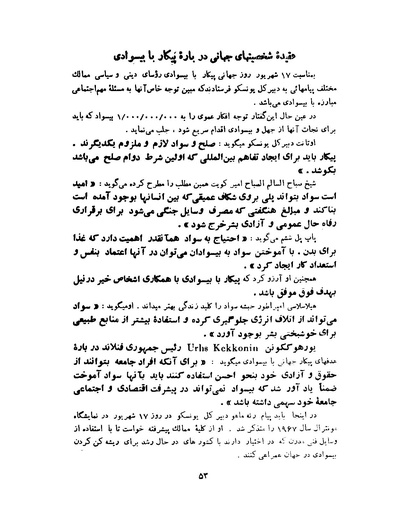 عقیدهٔ شخصیتهای جهانی در بارهٔ پیکار با بیسوادی
بمناسبت ۱۷ شهریور روز جهانی پیکار با بیسوادی رؤسای دینی و سیاسی ممالک
مختلف پیامهائی به دبیرکل یونسکو فرستادند که مبین توجه خاص آنها به مسئلهٔ مهم اجتماعی
مبارزه با بیسوادی می‌باشد .
در عین حال این گفتار توجه افکار عمومی را به ۱/۰۰۰/۰۰۰/۰۰۰ بیسواد که باید
برای نجات آنها از جهل و بیسوادی اقدام سریع شود ، جلب می‌نماید .
اوتانت دبیرکل یونسکو میگوید : صلح و سواد لازم و ملزوم یکدیگرند .
پیکار باید برای ایجاد تفاهم بین‌المللی که اولین شرط دوام صلح می‌باشد
بکوشد . »
شیخ صباح السالم الصباح امیر کویت همین مطلب را مطرح کرده می‌گوید : « امید
است سواد بتواند پلی بروی شکاف عمیقی که بین انسانها بوجود آمده است
بناکند و مبالغ هنگفتی که مصرف وسایل جنگی می‌شود برای برقراری
رفاه حال عمومی و آزادی بشر خرج شود » .
پاپ پل ششم می‌گوید : « احتیاج به سواد همانقدر اهمیت دارد که غذا
برای بدن . با آموختن سواد به بیسوادان می‌توان در آنها اعتماد بنفس و
استعداد کار ایجاد کرد » .
همچنین او آرزو کرد که پیکار با بیسوادی با همکاری اشخاص خیر در نیل
بهدف فوق موفق باشد .
هیلاسلاسی امپراطور حبشه سواد را کلید زندگی بهتر میداند . او میگوید : « سواد
می‌تواند از اتلاف انرژی جلوگیری کرده و استفادهٔ بیشتر از منابع طبیعی
برای خوشبختی بشر بوجود آورد » .
یورهو ککونن Urhs Kekkonin رئیس جمهوری فنلاند در بارهٔ
هدفهای پیکار جهانی با بیسوادی میگوید : « برای آنکه افراد جامعه بتوانند از
حقوق و آزادی خود بنحو احسن استفاده کنند باید بآنها سواد آموخت
ضمناً یاد آور شد که بیسواد نمی‌تواند در پیشرفت اقتصادی و اجتماعی
جامعهٔ خود سهمی داشته باشد » .
در اینجا باید پیام رنه ماهو دبیر کل یونسکو در روز ۱۷ شهریور در نمایشگاه
مونترال سال ۱۹۶۷ را متذکر شد . او از کلیهٔ ممالک پیشرفته خواست تا با استفاده از
وسایل فنی مدرن که در اختیار دارند با کشور های در حال رشد برای ریشه کن کردن
بیسوادی در جهان همراهی کنند .
۵۳